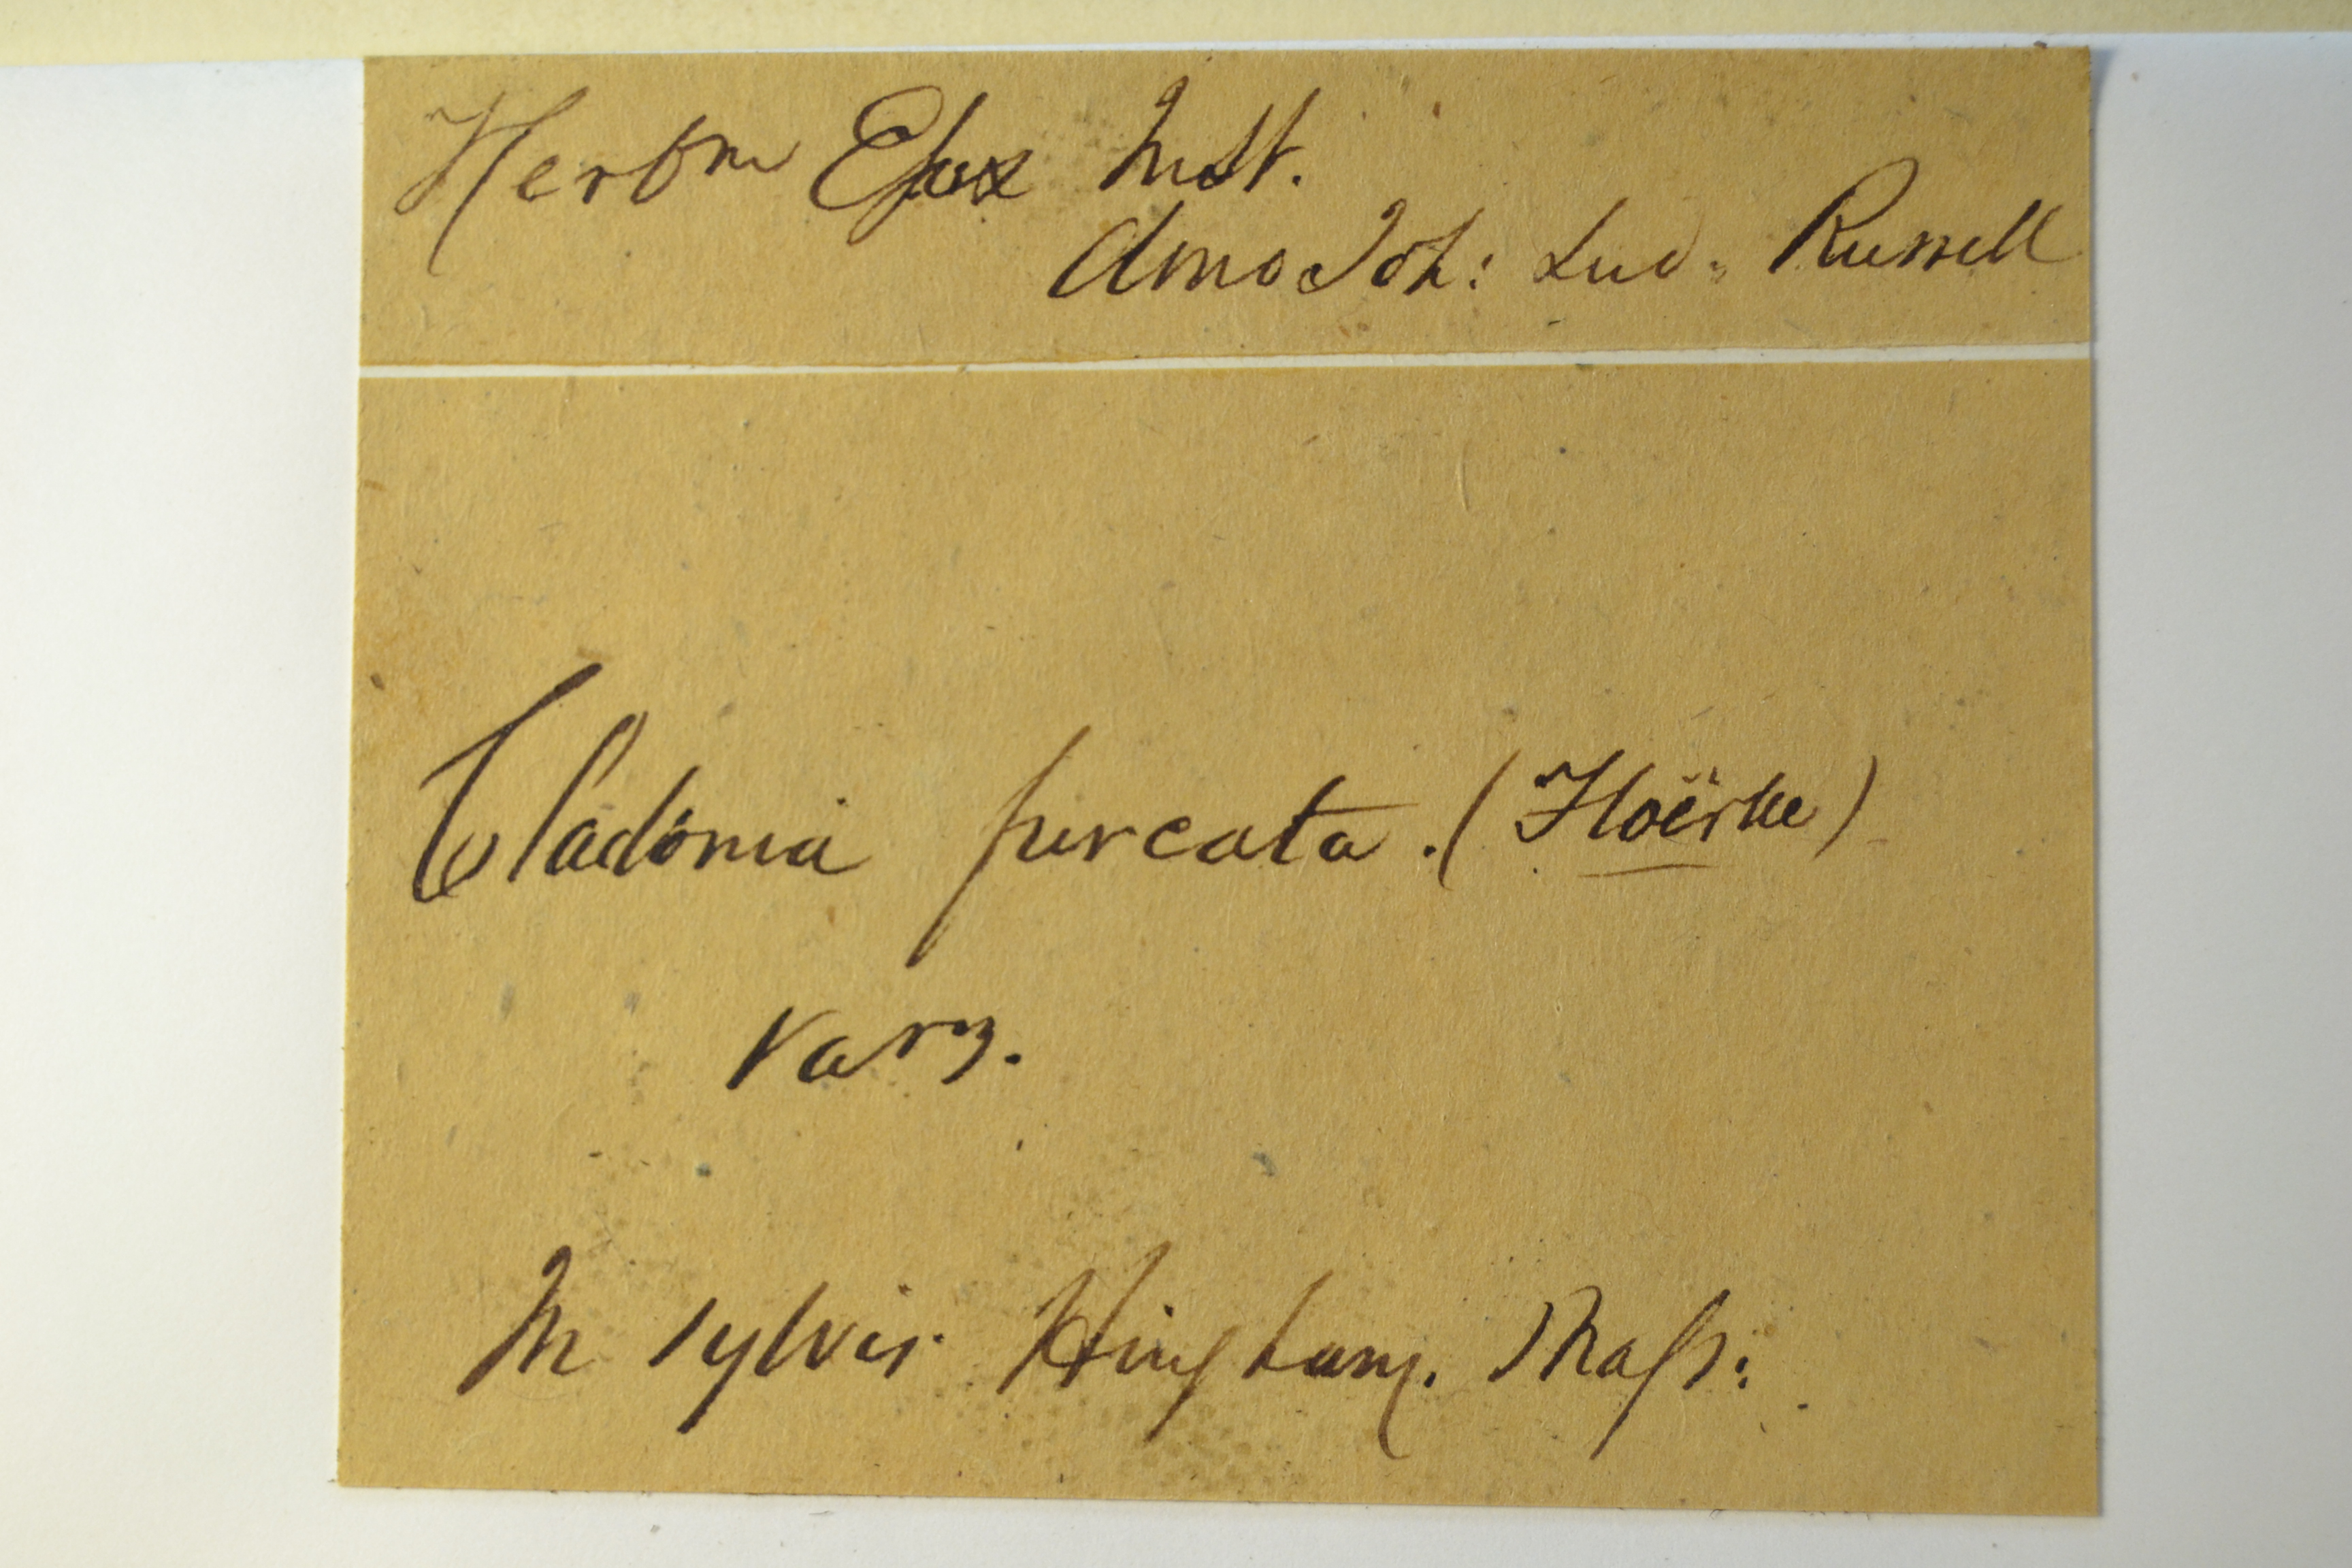 Herbm Essex Inst.
Amo Joh: Lud. Russell
Cladonia furcata. (Floërke)
varz.
In sylvis. Hingham. Mass: